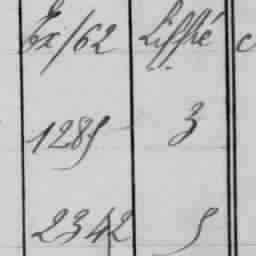 Ex/62 Liffré c
1285 3
2342 5